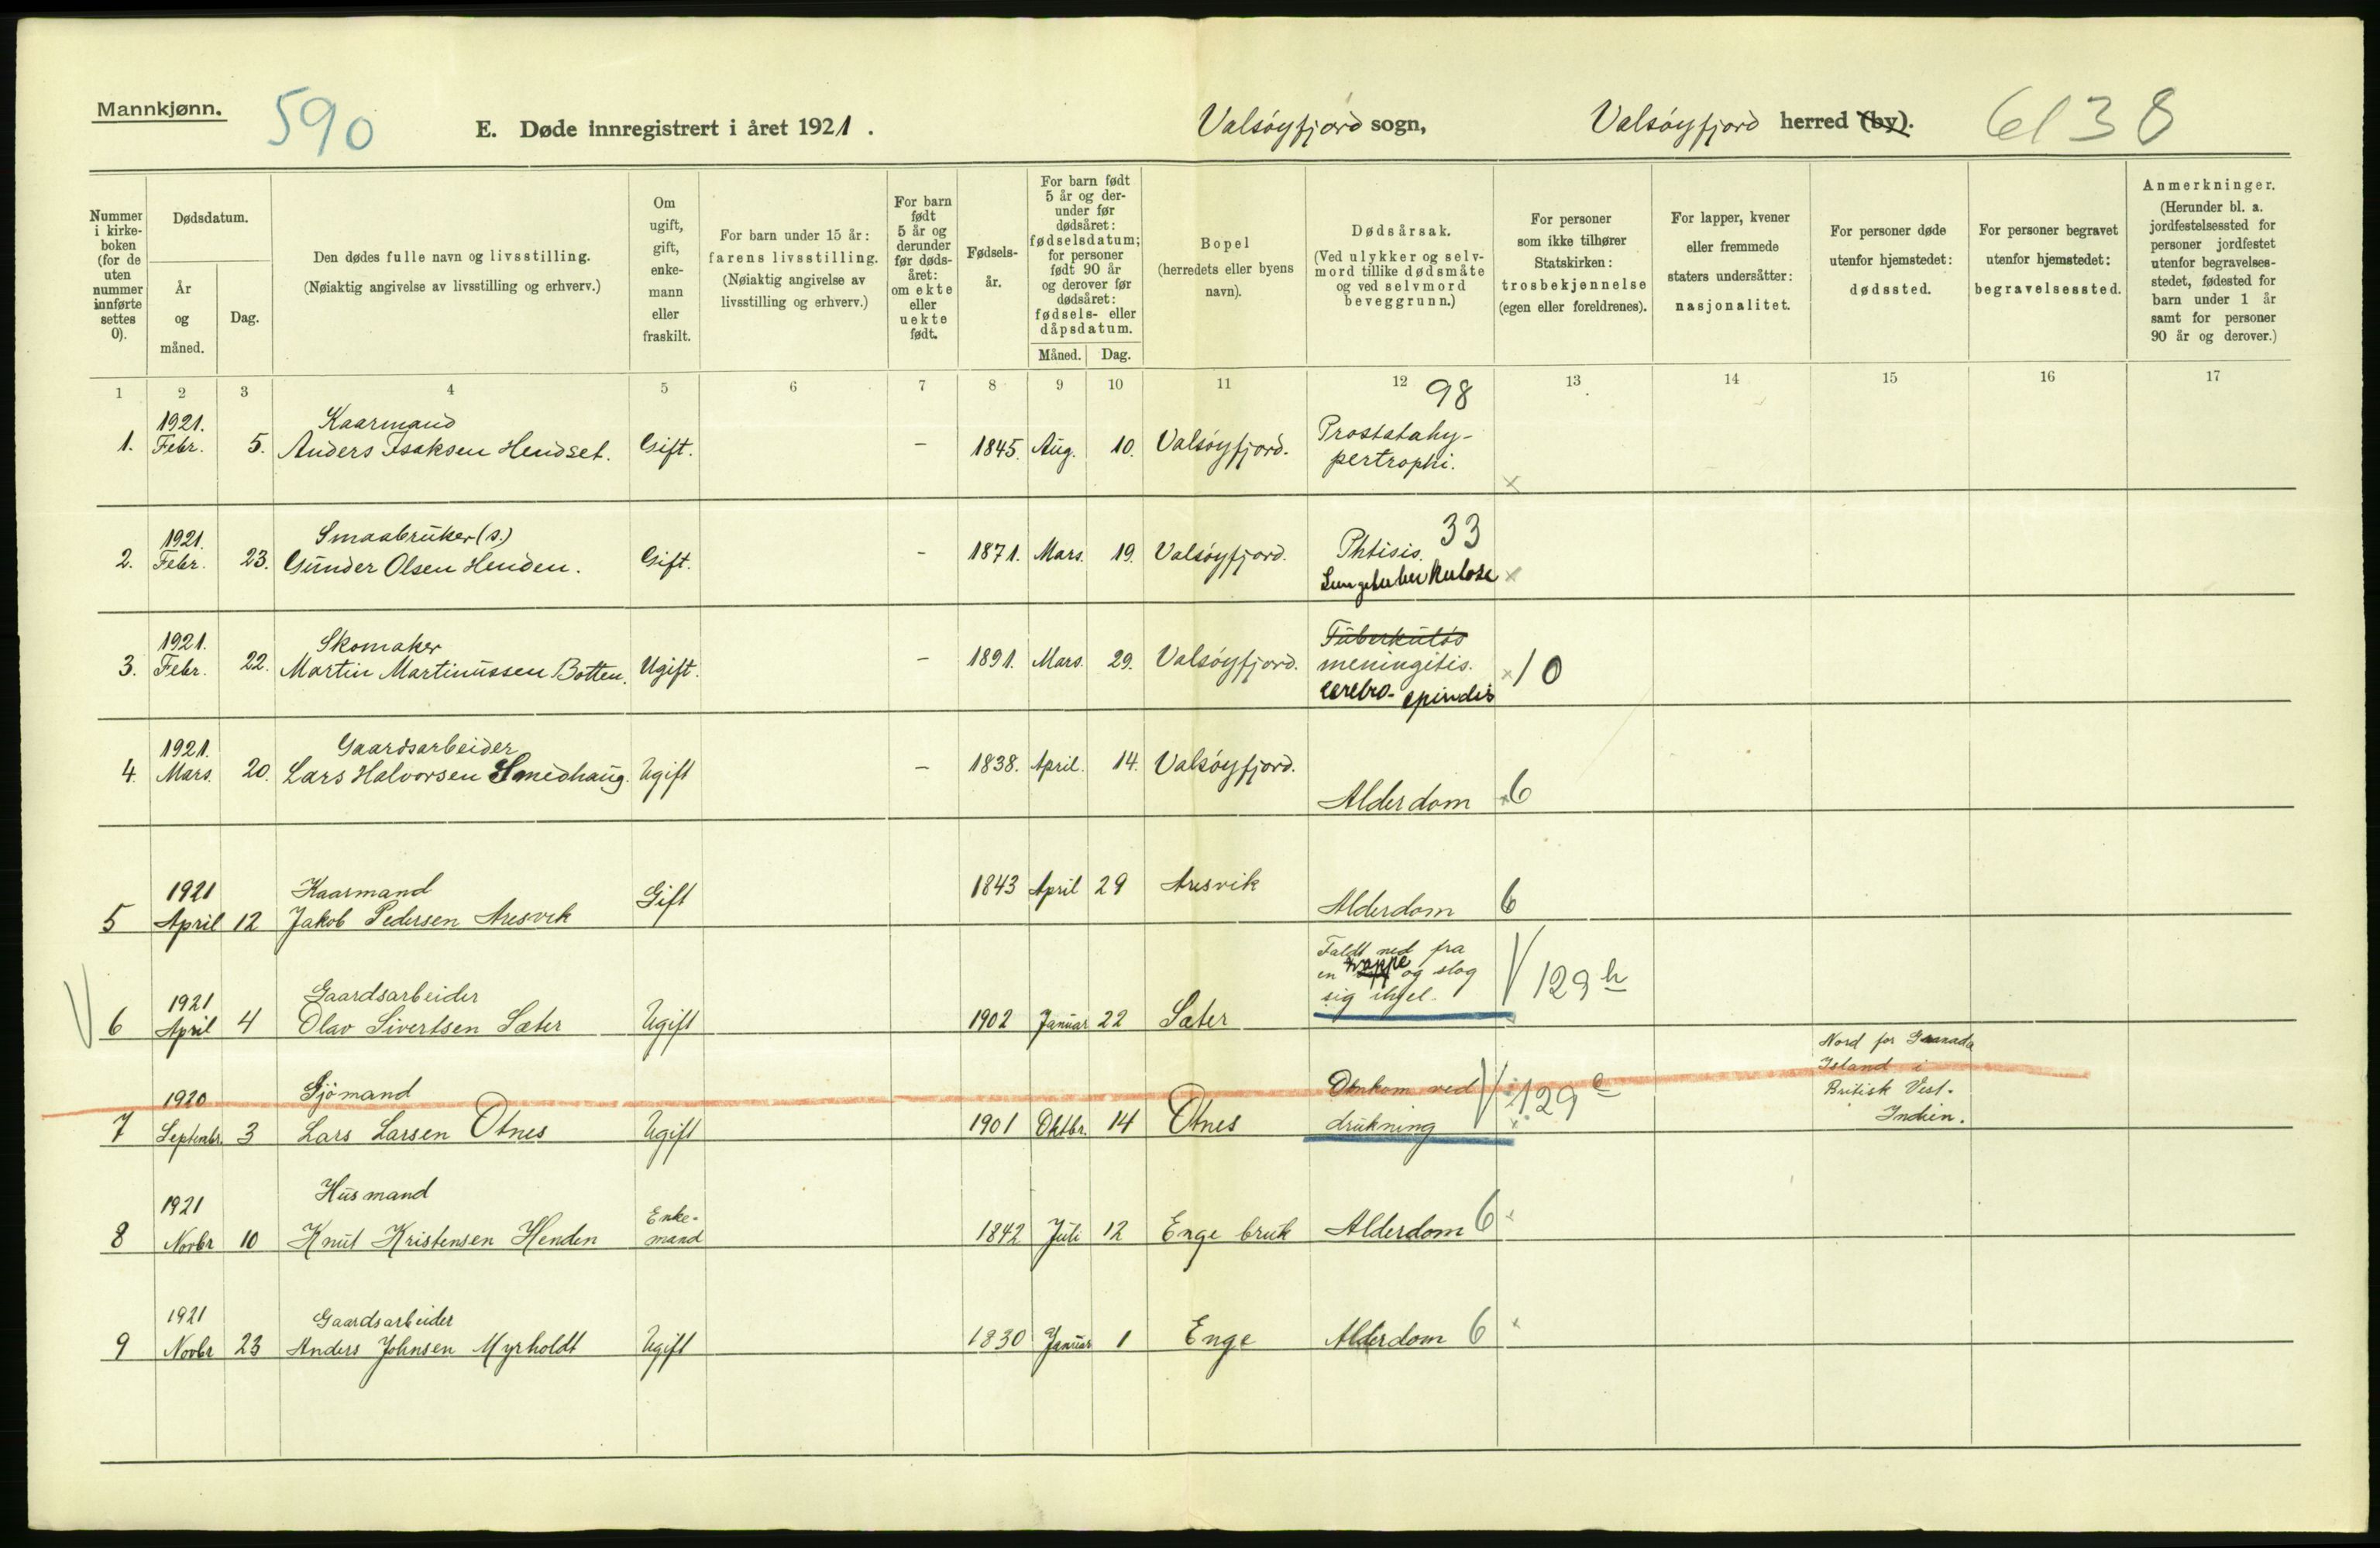 Mannkjønn.
590
E. Døde innregistrert i året 1921.
Valsøyfjord sogn,
Valsøyfjord herred (by).
6138
Nummer i kirkeboken (for de uten nummer innførte settes 0).
Dødsdatum.
År og måned.
Dag.
Den dødes fulle navn og livsstilling.
(Nøiaktig angivelse av livsstilling og erhverv.)
Om ugift, gift, enkemann eller fraskilt.
For barn under 15 år: farens livsstilling.
(Nøiaktig angivelse av livsstilling og erhverv.)
For barn født 5 år og derunder før dødsåret: om ekte eller uekte født.
Fødselsår.
For barn født 5 år og derunder før dødsåret: fødselsdatum; for personer født 90 år og derover før dødsåret: fødsels- eller dåpsdatum.
Måned. Dag.
Bopel
(herredets eller byens navn).
Dødsårsak.
(Ved ulykker og selvmord tillike dødsmåte og ved selvmord beveggrunn.)
For personer som ikke tilhører Statskirken: trosbekjennelse (egen eller foreldrenes).
For lapper, kvener eller fremmede staters undersåtter: nasjonalitet.
For personer døde utenfor hjemstedet: dødssted.
For personer begravet utenfor hjemstedet: begravelsessted.
Anmerkninger.
(Herunder bl. a. jordfestelsessted for personer jordfestet utenfor begravelsesstedet, fødested for barn under 1 år samt for personer 90 år og derover.)
1 2 3 4 5 6 7 8 9 10 11 12 13 14 15 16 17
98
1. 1921. Febr. 5. Kaarmand
Anders Isaksen Hendset. Gift. – 1845. Aug. 10. Valsøyfjord. Prostatahy-
pertrophi. ×
2. 1921. Febr. 23. Smaabruker (s.)
Gunder Olsen Henden. Gift. – 1871. Mars. 19. Valsøyfjord. Phtisis. 33
Lungetuberkulose ×
3. 1921. Febr. 22. Skomaker
Martin Martinussen Botten. Ugift. – 1891. Mars. 29. Valsøyfjord. Tuberkuløs
meningitis. × 10
cerebro-spindis
4. 1921. Mars. 20. Gaardsarbeider
Lars Halvorsen Smedhaug. Ugift – 1838. April. 14. Valsøyfjord.
Alderdom × 6
5 1921 April 12 Kaarmand
Jakob Pedersen Aresvik Gift 1843 April 29 Aresvik Alderdom 6
6 1921 April 4 Gaardsarbeider
Olav Sivertsen Sæter Ugift 1902 Januar 22 Sæter Faldt ned fra
en trappe og slog
sig ihjel. 129 h
7 1920 Septembr. 3 Sjömand
Lars Larsen Otnes Ugift 1901 Oktbr. 14 Otnes Omkom ved
drukning 129 e
Nord for Granada
Island i
Britisk Vest-
Indien.
8 1921 Novbr 10 Husmand
Knut Kristensen Henden Enke-
mand 1842 Juli 12 Enge bruk Alderdom 6 ×
9 1921 Novbr 23 Gaardsarbeider
Anders Johnsen Myrholdt Ugift 1830 Januar 1 Enge Alderdom 6 ×